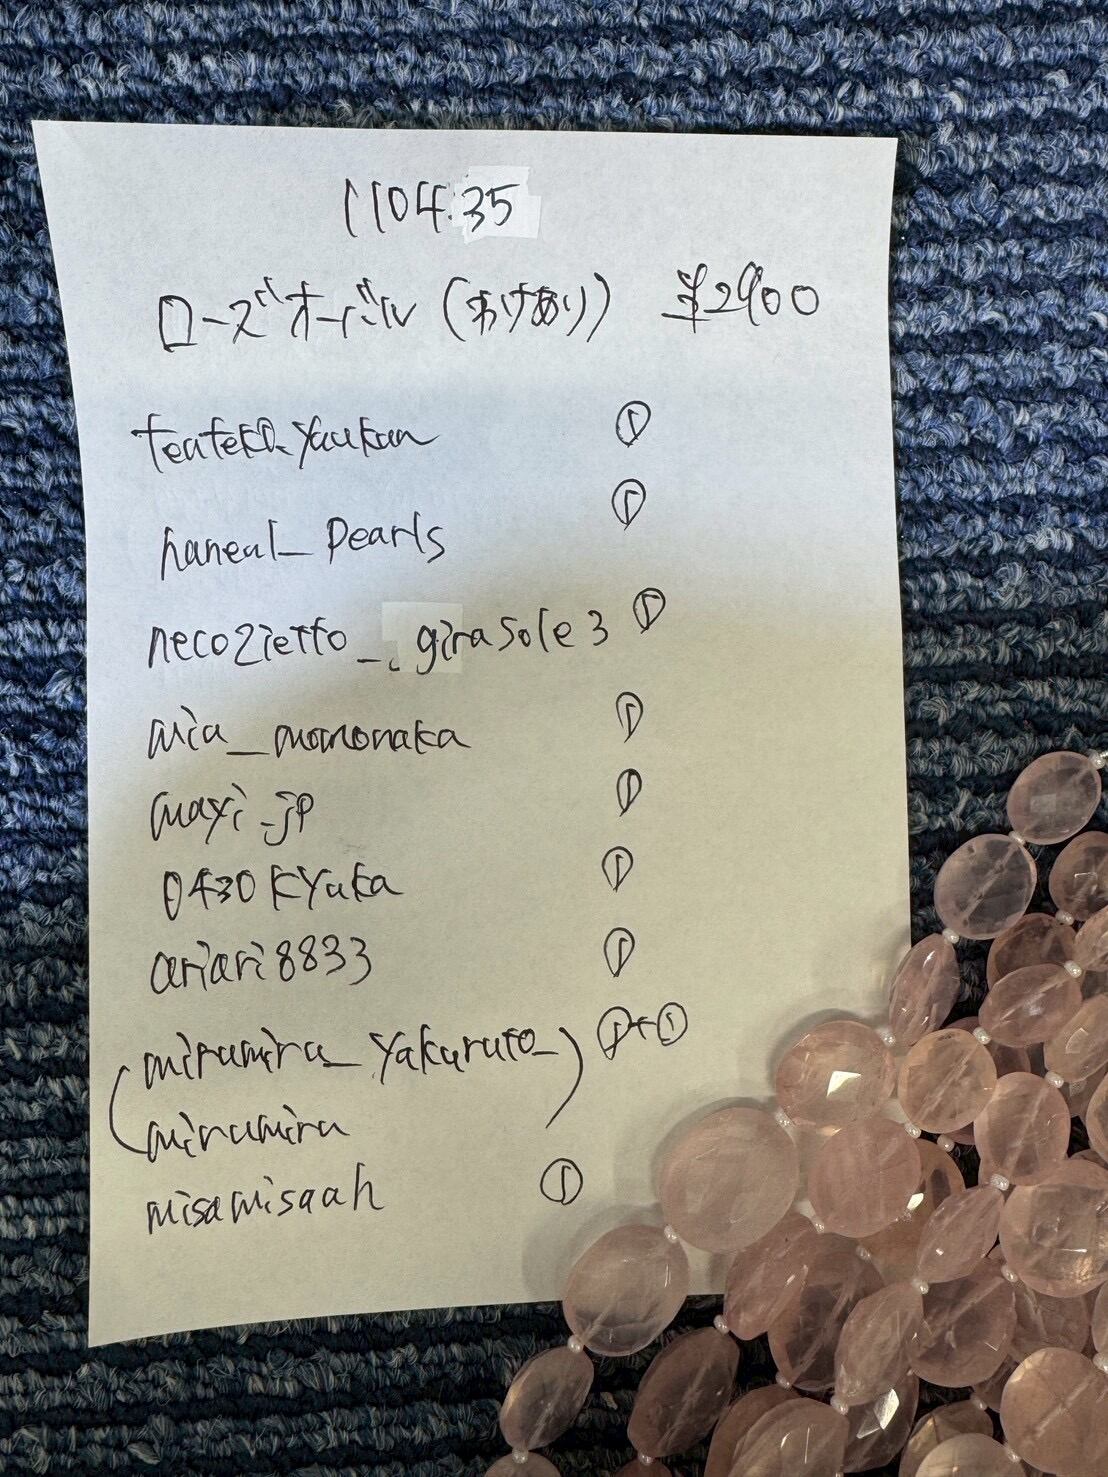 1104.35
ローズオーバル (わけあり) ¥2900
teateko_yuukun ①
haneul_pearls ①
necozietto_. girasole3 ①
mia_momonaka ①
mayi_jp ①
0430kyuka ①
ariari8833 ①
(miramira_yakuruto_) ①+①
miramira
misamisaah ①